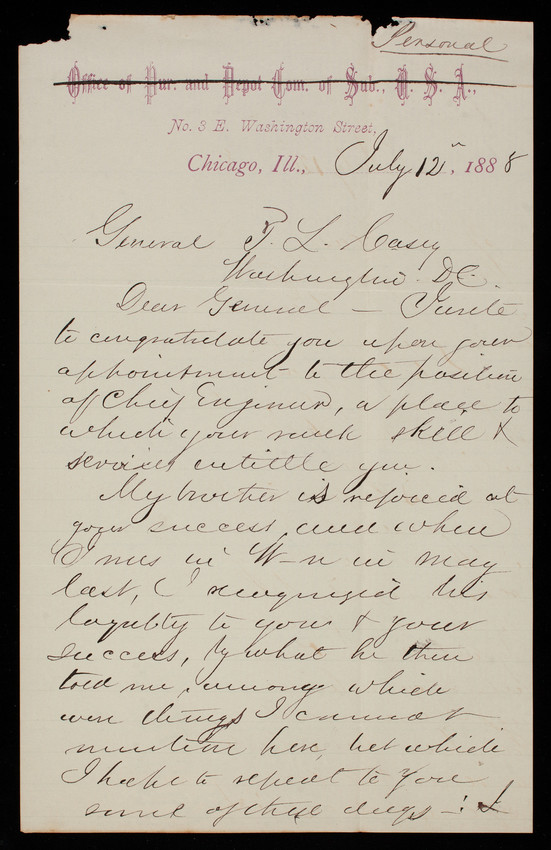 Personal
Office of Pur. and Depot Com. of Sub., U. S. A.,
No. 3 E. Washington Street,
Chicago, Ill., July 12", 1888
General T. L. Casey
Washington D.C.
Dear General — I write
to congratulate you upon your
appointment to the position
of Chief Engineer, a place to
which your rank skill &
services entittle you.
My brother is rejoiced at
your success and when
I was in W-n in May
last, I recognized his
loyalty to you & your
success, by what he then
told me, among which
were things I cannot
mention here but which
I hope to repeat to you
some of these days —: I